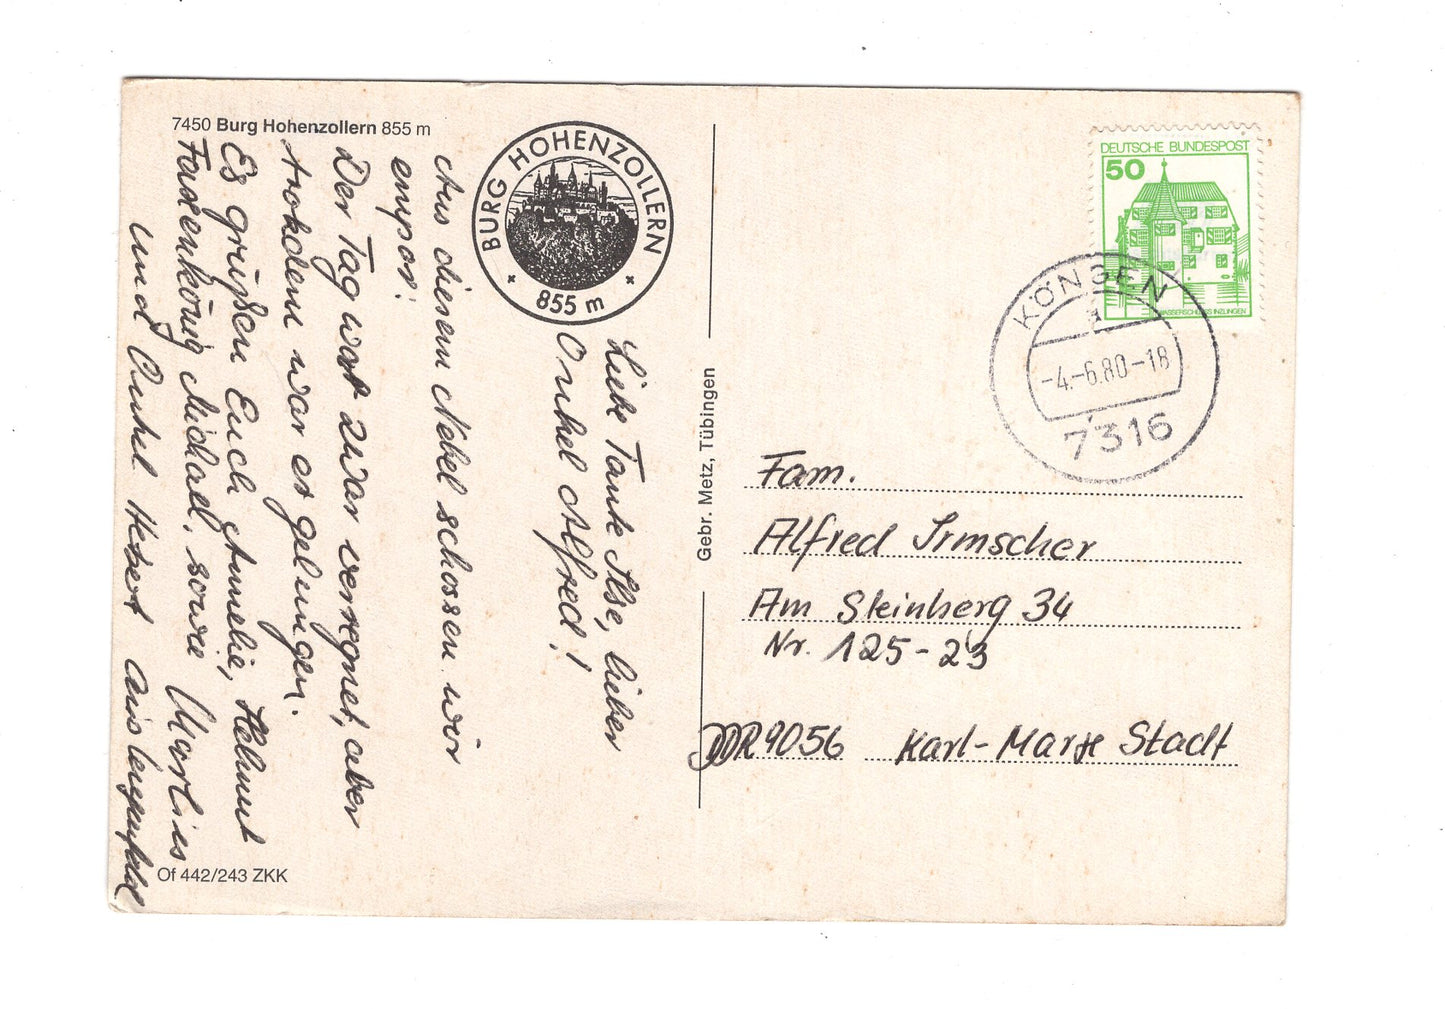 7450 Burg Hohenzollern 855 m
BURG HOHENZOLLERN
855 m
Liebe Tante Ilse, lieber
Onkel Alfred!
Aus diesem Nebel schossen wir
empor!
Der Tag war zwar verregnet, aber
trotzdem war es gelungen.
Es grüßen Euch Annelie, Helmut
Fadenkönig Michael, sowie Marlies
und Onkel Hebert aus Lengenfeld
Of 442/243 ZKK
Gebr. Metz, Tübingen
DEUTSCHE BUNDESPOST
50
WASSERSCHLOSS INZLINGEN
KÖNGEN
a
-4.-6.80-18
7316
Fam.
Alfred Irmscher
Am Steinberg 34
Nr. 125-23
DDR 9056 Karl-Marx Stadt